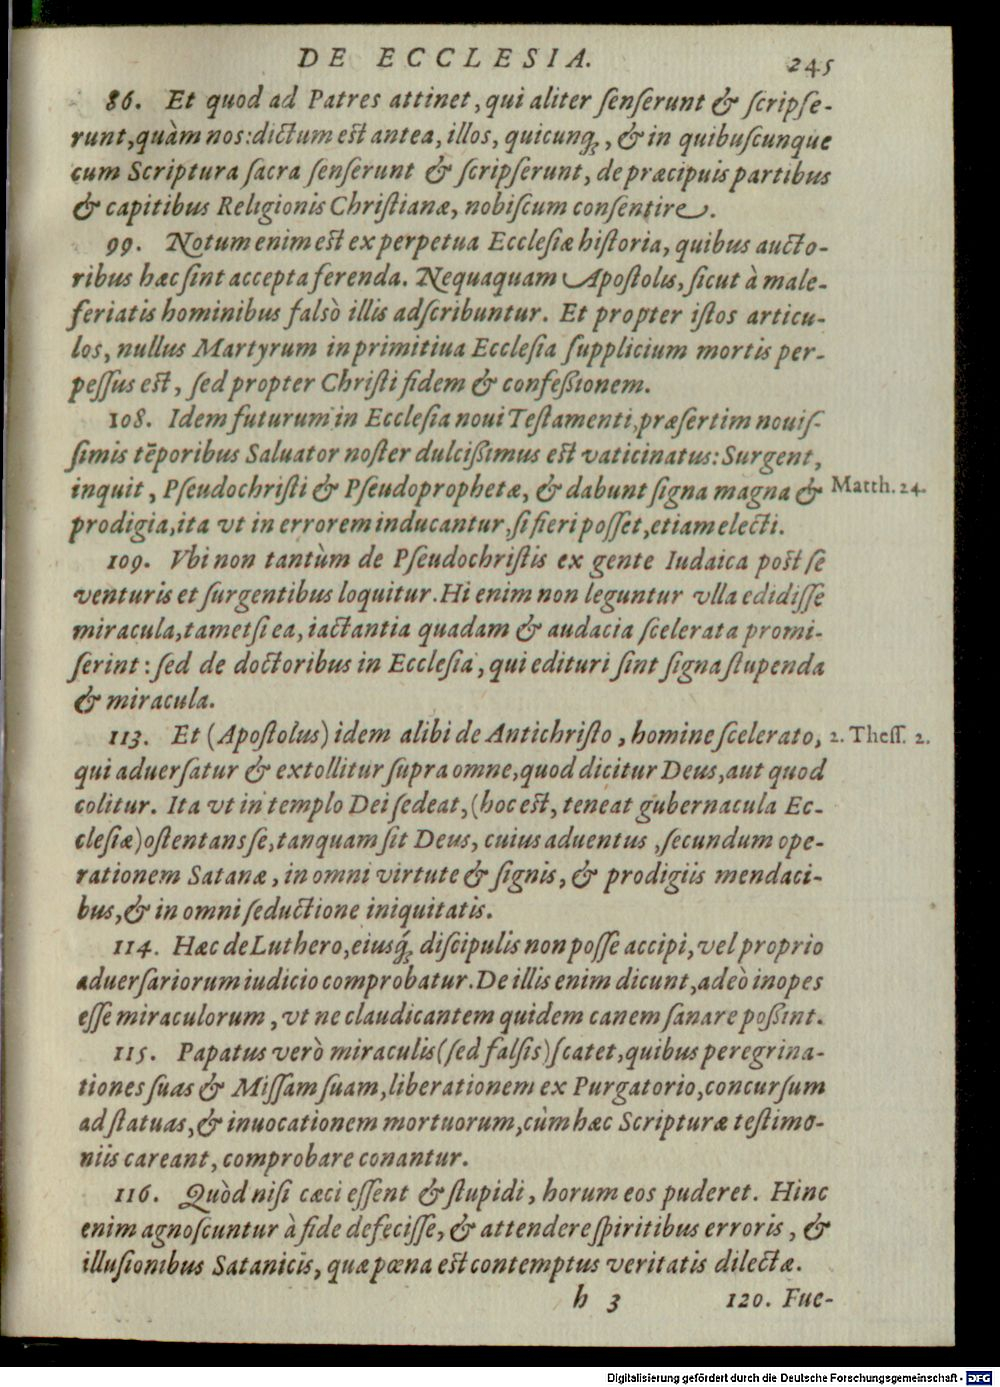 DE ECCLESIA. 245
86. Et quod ad Patres attinet, qui aliter ſenſerunt & ſcripſe-
runt, quàm nos: dictum est antea, illos, quicunq;, & in quibuſcunque
cum Scriptura ſacra ſenſerunt & ſcripſerunt, de præcipuis partibus
& capitibus Religionis Chriſtianæ, nobiſcum conſentire.
99. Notum enim est ex perpetua Eccleſiæ hiſtoria, quibus aucto-
ribus hæc ſint accepta ferenda. Nequaquam Apoſtolis, ſicut à male-
feriatis hominibus falsò illis adſcribuntur. Et propter iſtos articu-
los, nullus Martyrum in primitiua Eccleſia ſupplicium mortis per-
peſſus est, ſed propter Chriſti fidem & confeßionem.
108. Idem futurum in Eccleſia noui Teſtamenti, præſertim nouiſ-
ſimis tẽporibus Saluator noſter dulcißimus est vaticinatus: Surgent,
inquit, Pſeudochriſti & Pſeudoprophetæ, & dabunt ſigna magna & Matth. 24.
prodigia, ita vt in errorem inducantur, ſi fieri poſſet, etiam electi.
109. Vbi non tantùm de Pſeudochriſtis ex gente Iudaica post ſe
venturis et ſurgentibus loquitur. Hi enim non leguntur vlla edidiſſe
miracula, tametſi ea, iactantia quadam & audacia ſcelerata promi-
ſerint: ſed de doctoribus in Eccleſia, qui edituri ſint ſigna ſtupenda
& miracula.
113. Et (Apoſtolus) idem alibi de Antichriſto, homine ſcelerato, 2. Theſſ. 2.
qui aduerſatur & extollitur ſupra omne, quod dicitur Deus, aut quod
colitur. Ita vt in templo Dei ſedeat, (hoc est, teneat gubernacula Ec-
cleſiæ) oſtentans ſe, tanquam ſit Deus, cuius aduentus, ſecundum ope-
rationem Satanæ, in omni virtute & ſignis, & prodigiis mendaci-
bus, & in omni ſeductione iniquitatis.
114. Hæc de Luthero, eiusq́; diſcipulis non poſſe accipi, vel proprio
aduerſariorum iudicio comprobatur. De illis enim dicunt, adeò inopes
eſſe miraculorum, vt ne claudicantem quidem canem ſanare poßint.
115. Papatus verò miraculis (ſed falſis) ſcatet, quibus peregrina-
tiones ſuas & Miſſam ſuam, liberationem ex Purgatorio, concurſum
ad ſtatuas, & inuocationem mortuorum, cùm hæc Scripturæ teſtimo-
niis careant, comprobare conantur.
116. Quòd niſi cæci eſſent & ſtupidi, horum eos puderet. Hinc
enim agnoſcuntur à fide defeciſſe, & attendere ſpiritibus erroris, &
illuſionibus Satanicis, quæ pœna est contemptus veritatis dilectæ.
h 3 120. Fue-
Digitalisierung gefördert durch die Deutsche Forschungsgemeinschaft - DFG